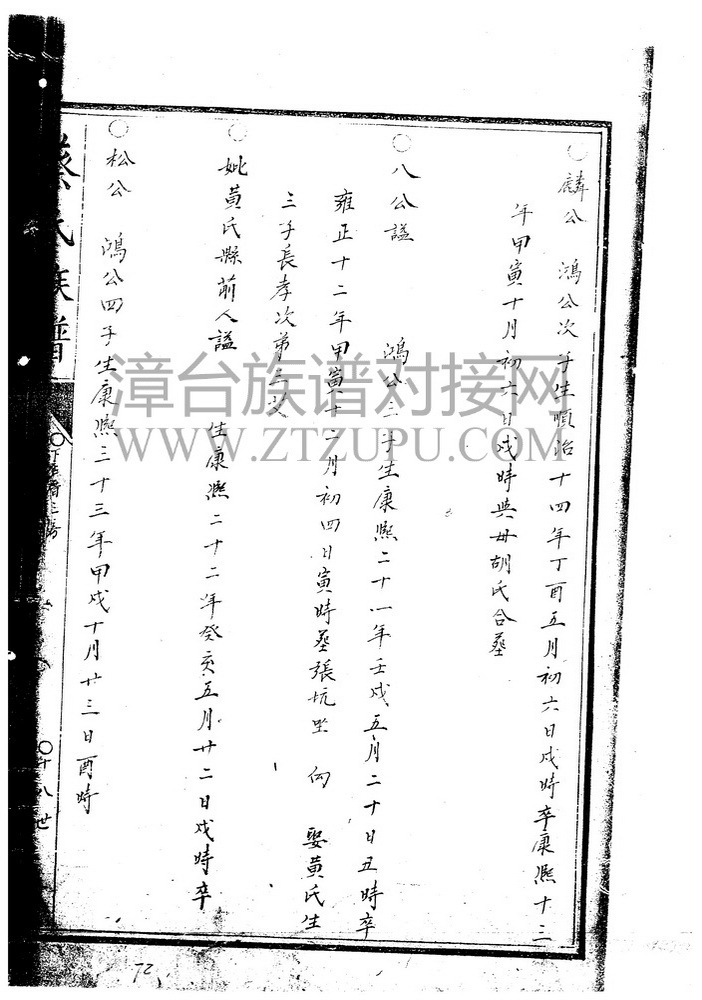 ○麟公 鴻公次子生順治十四年丁酉五月初六日戌時卒康熙十三
年甲寅十月初六日戌時與毌胡氏合墓
○八公諡 鴻公三子生康熙二十一年壬戌五月二十日丑時卒
雍正十二年甲寅十二月初四日寅時墓張坑坐 向 娶黄氏生
三子長孝次弟三
○妣黄氏縣前人諡 生康熙二十二年癸亥五月廿二日戌時卒
○松公 鴻公四子生康熙三十三年甲戌十月廿三日酉時
蔡氏族譜
○十八世
72
漳台族谱对接网
WWW.ZTZUPU.COM